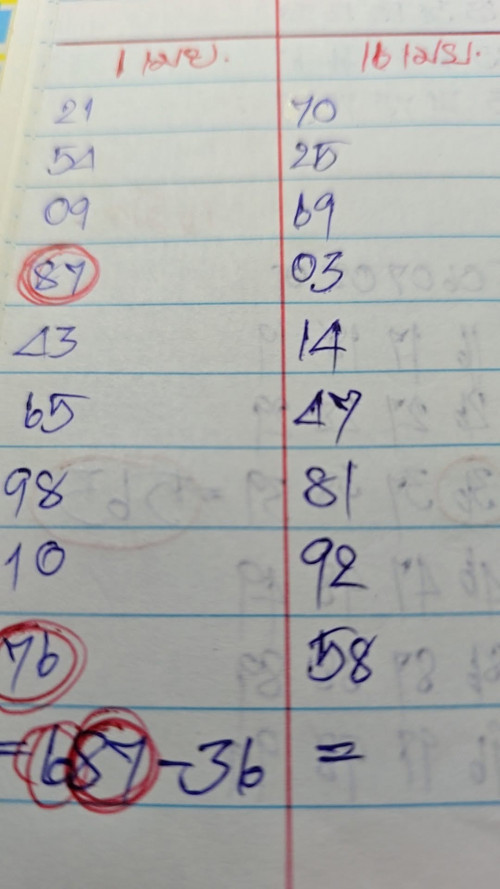 1 เมย. 16 เมย.
21 70
54 25
09 69
87 03
43 14
65 47
98 81
10 92
76 58
= 687 - 36 =